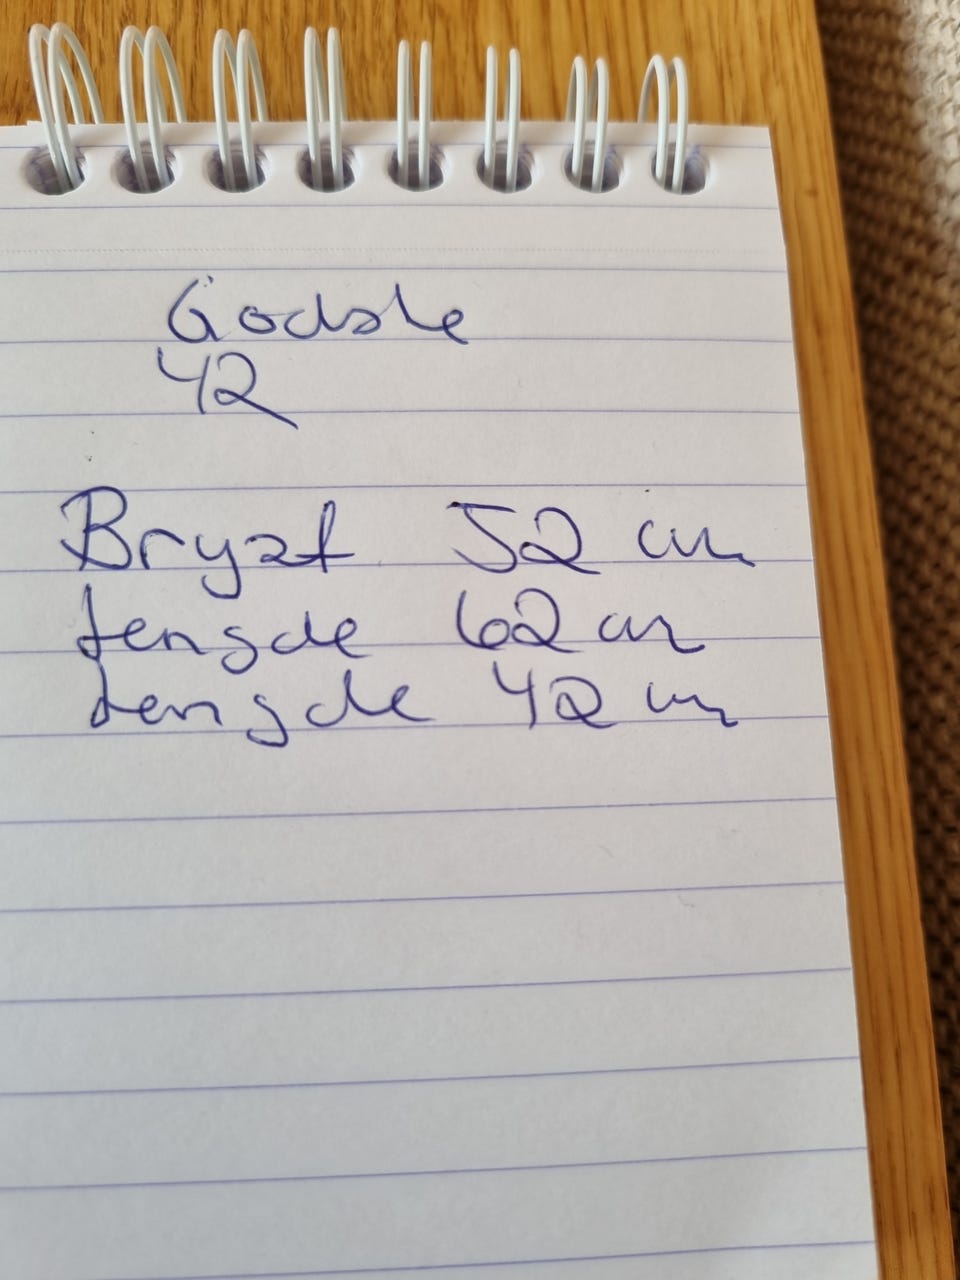 Godske
42
Bryst 52 cm
Lengde 62 cm
Lengde 42 cm